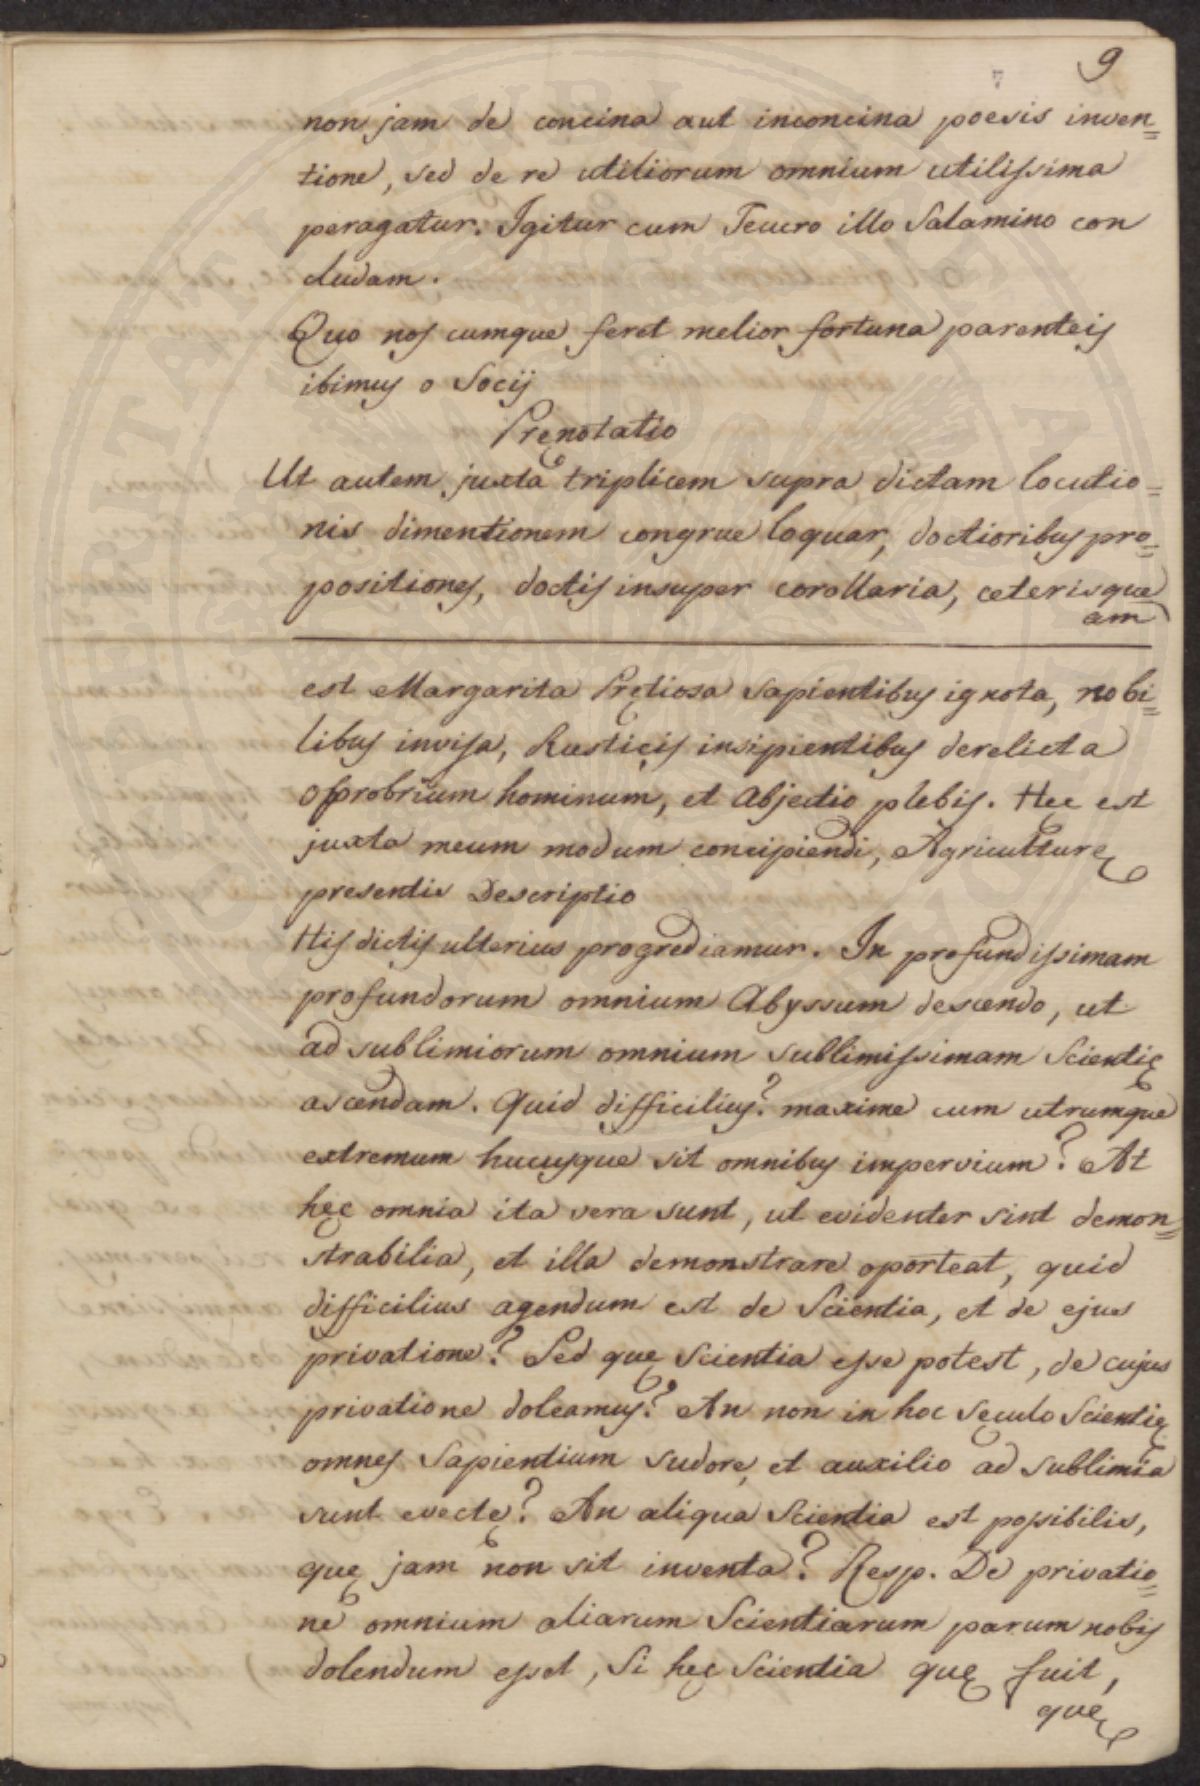 9
non jam de concina aut inconcina poesis inven=
tione, sed de re utiliorum omnium utilissima
peragatur. Igitur cum Teucro illo Salamino con
cludam.
Quo nos cumque feret melior fortuna parenteis
ibimus o Socij
Pręnotatio
Ut autem juxta triplicem supra dictam locutio=
nis dimentionem congrue loquar, doctioribus pro=
positiones, doctis insuper corollaria, ceterisque
am
est Margarita Prętiosa sapientibus ignota, nobi=
libus invisa, Rusticis insipientibus derelicta
opprobrium hominum, et Abjectio plebis. Hęc est
juxta meum modum concipiendi, Agriculturę
presentis Descriptio
His dictis ulterius progrediamur. In profundissimam
profundorum omnium Abyssum descendo, ut
ad sublimiorum omnium sublimissimam Scientię
ascendam. Quid difficilius? maxime cum utrumque
extremum hucusque sit omnibus impervium? At
hęc omnia ita vera sunt, ut evidenter sint demon=
strabilia, et illa demonstrare oporteat, quid
difficilius agendum est de Scientia, et de ejus
privatione? Sed quę Scientia esse potest, de cujus
privatione doleamus? An non in hoc Sęculo Scientię
omnes Sapientium sudore, et auxilio ad sublimia
sunt evectę? An aliqua Scientia est possibilis,
quę jam non sit inventa? Resp. De privatio=
ne omnium aliarum Scientiarum parum nobis
dolendum esset, Si hęc Scientia quę fuit,
quę